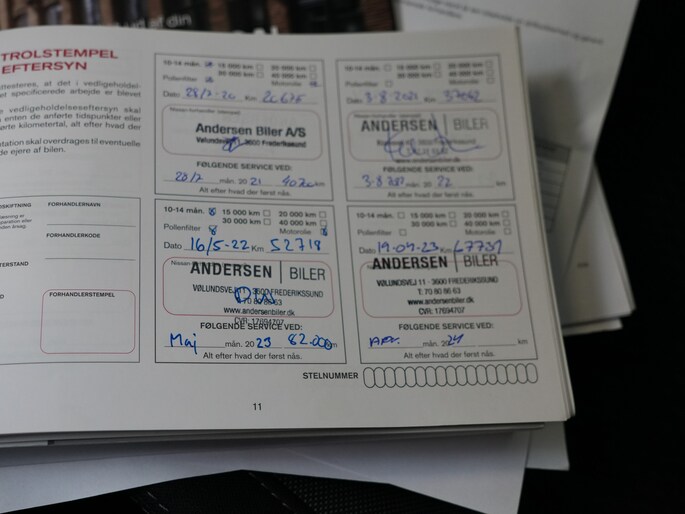 af din
TROLSTEMPEL
EFTERSYN
ttesteres, at det i vedligeholdel-
et specificerede arbejde er blevet
e vedligeholdelseseftersyn skal
enten de anførte tidspunkter eller
ørte kilometertal, alt efter hvad der
tation skal overdrages til eventuelle
e ejere af bilen.
10-14 mån. 15 000 km 20 000 km
30 000 km 40 000 km
Pollenfilter Motorolie
Dato 28/7-20 Km 26675
Andersen Biler A/S
Vølundsvej 3600 Frederikssund
FØLGENDE SERVICE VED:
28/7 20 21 km
Alt efter hvad der først nås.
10-14 mån. 15 000 km 20 000 km
30 000 km 40 000 km
Pollenfilter Motorolie
Dato 3-8-2021 Km
ANDERSEN BILER
www.andersenbiler.dk
FØLGENDE SERVICE VED:
mån. 20 22 km
Alt efter hvad der først nås.
FORHANDLERNAVN
FORHANDLERKODE
FORHANDLERSTEMPEL
10-14 mån. 15 000 km 20 000 km
30 000 km 40 000 km
Pollenfilter Motorolie
Dato 16/5-22 Km 52719
ANDERSEN BILER
VØLUNDSVEJ 11 - 3600 FREDERIKSSUND
T: 70 80 86 63
www.andersenbiler.dk
CVR: 17694707
FØLGENDE SERVICE VED:
Maj mån. 20 23 82.000 km
Alt efter hvad der først nås.
10-14 mån. 15 000 km 20 000 km
30 000 km 40 000 km
Pollenfilter Motorolie
Dato 19-04-23 Km 67731
ANDERSEN BILER
VØLUNDSVEJ 11 - 3600 FREDERIKSSUND
T: 70 80 86 63
www.andersenbiler.dk
CVR: 17694707
FØLGENDE SERVICE VED:
Apr. mån. 20 24 km
Alt efter hvad der først nås.
STELNUMMER
11